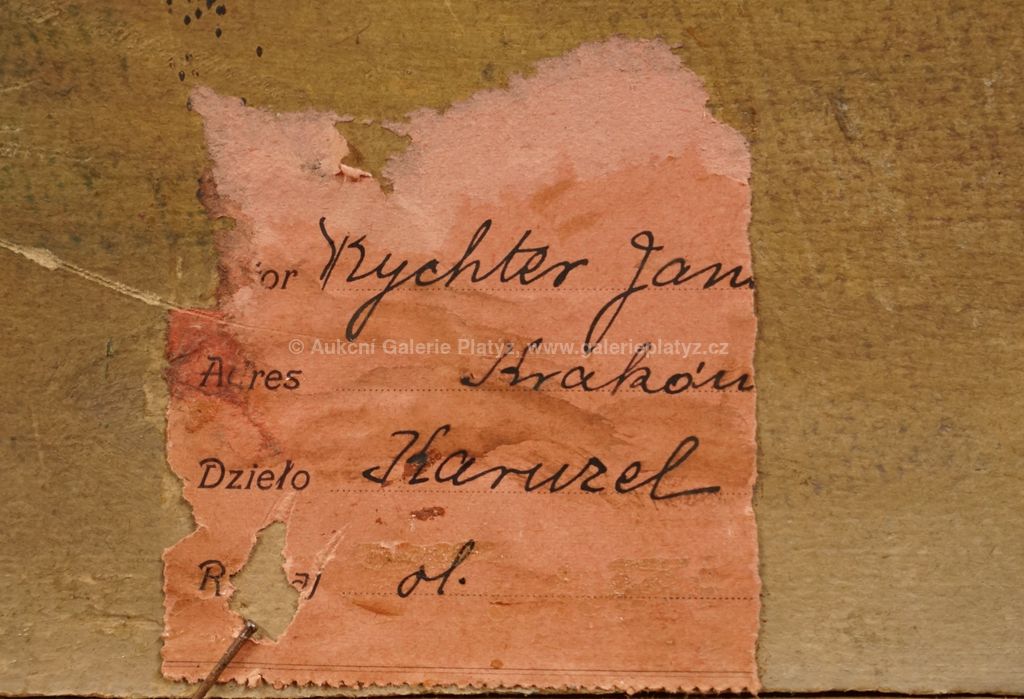 or Rychter Jan
© Aukcní Galerie Platýz, www.galerieplatyz.cz
Adres Kraków
Dzieło Karuzel
R aj ol.